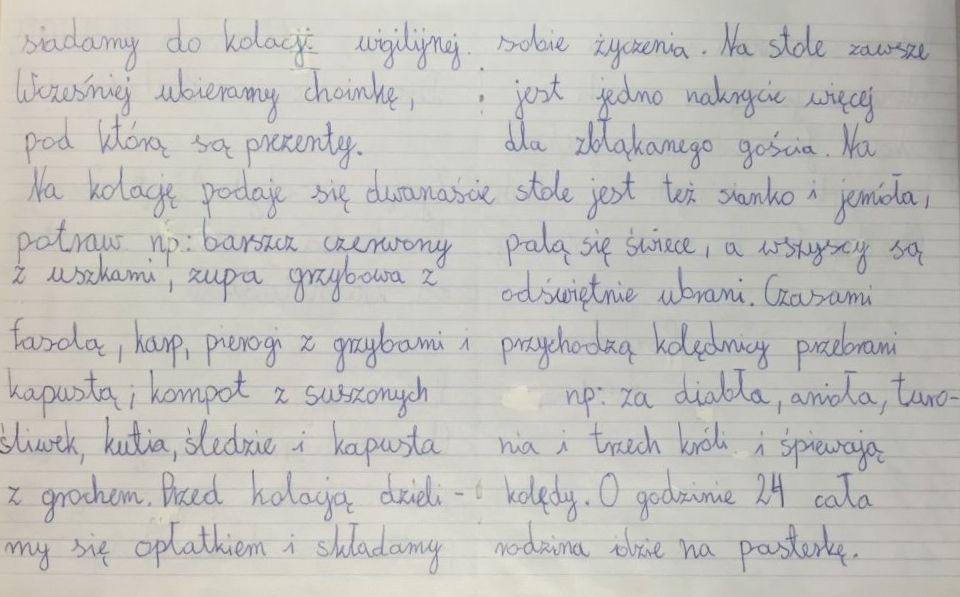 siadamy do kolacji wigilijnej.
Wcześniej ubieramy choinkę,
pod którą są prezenty.
Na kolację podaje się dwanaście
potraw np: barszcz czerwony
z uszkami, zupa grzybowa z
fasolą, karp, pierogi z grzybami i
kapustą; kompot z suszonych
śliwek, kutia, śledzie i kapusta
z grochem. Przed kolacją dzieli-
my się opłatkiem i składamy
sobie życzenia. Na stole zawsze
jest jedno nakrycie więcej
dla zbłąkanego gościa. Na
stole jest też sianko i jemioła,
palą się świece, a wszyscy są
odświętnie ubrani. Czasami
przychodzą kolędnicy przebrani
np: za diabła, anioła, turo-
nia i trzech króli i śpiewają
kolędy. O godzinie 24 cała
rodzina idzie na pasterkę.